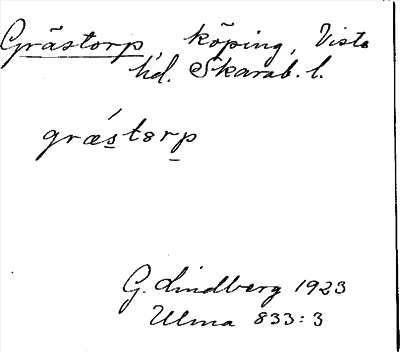 Grästorp, köping, Viste
hd. Skarab. l.
græ´stɜrp
G. Lindberg 1923
Ulma 833:3